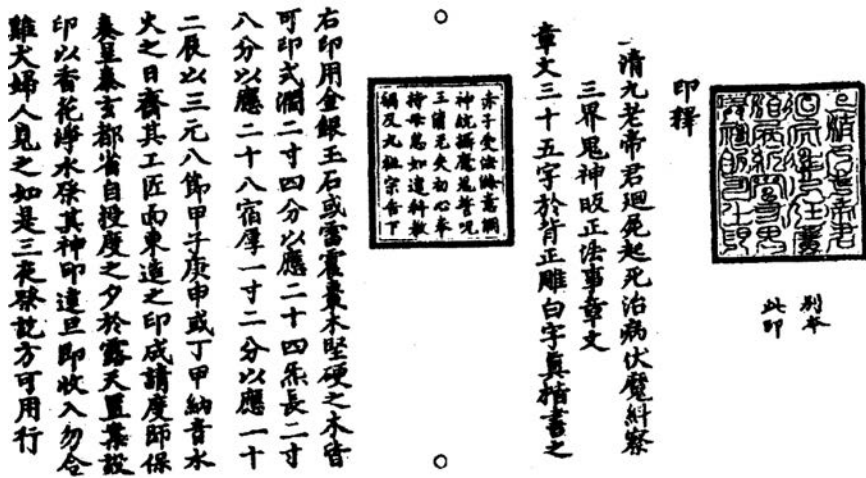 別本
此印
印釋
一清九老帝君迴屍起死治病伏魔糾察
三界鬼神皈正法事章文
章文三十五字於背正雕白字真楷書之
赤子受法
神統攝魔鬼誓咒
无失初心奉
持毋怠如違科教
禍及九祖宗
右印用金銀玉石或雷霍棗木堅硬之木皆
可印式濶二寸四分以應二十四炁長二寸
八分以應二十八宿厚一寸二分以應一十
二辰以三元八節甲子庚申或丁甲納音水
火之日齋其工匠面東造之印成請度師保
奏呈泰玄都省自授度之夕於露天置案設
印以香花淨水祭其神印達旦即收入勿令
雞犬婦人見之如是三夜祭訖方可用行